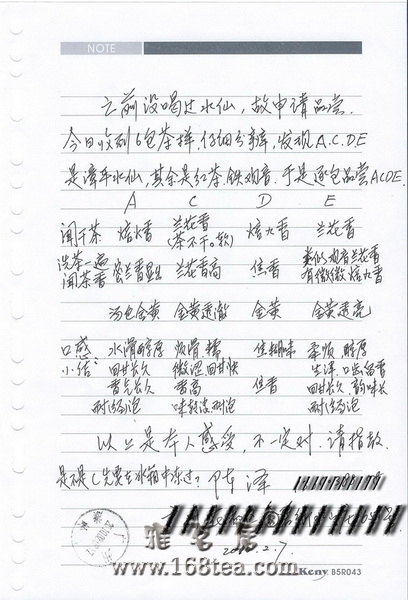 NOTE
之前没喝过水仙，故申请品尝.
今日收到6包茶样，仔细分辨，发现A.C.D.E
是漳平水仙，其余是红茶.铁观音.于是逐包品尝ACDE.
A C D E
闻干茶 焙火香 兰花香 焙火香 兰花香
(茶不干。软)
洗茶一遍
闻茶香 兰香显 兰花香高 焦香 类似观音兰花香
有微微焙火香
汤色金黄 金黄透澈 金黄 金黄透亮
口感: 水滑醇厚 焦糊味 柔顺 醇厚
小结: 回甘长久 微涩回甘快 生津.口齿留香
香气长久 香高 回甘长久 韵味长
耐冲泡 耐泡 耐冲泡
以上是本人感受，不一定对.请指教.
是不是C先要在冰箱中冻过? 陈泽
2010.2.7.
雅茗居
www.168tea.com
Keny 85R043